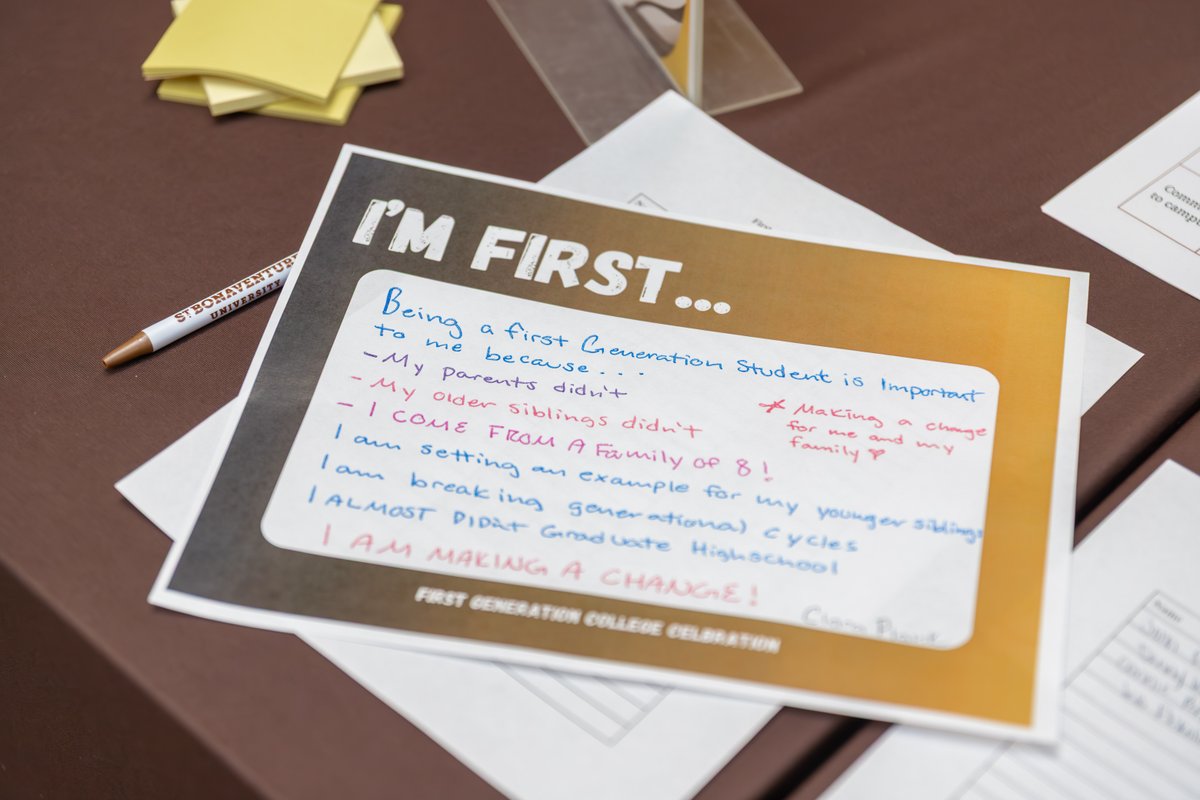 I'M FIRST...
Being a first Generation Student is Important
to me because...
- My parents didn't
- My older siblings didn't
- I COME FROM A Family of 8!
* Making a change
for me and my
family
I am setting an example for my younger siblings
I am breaking generational cycles
I ALMOST DIDN'T Graduate Highschool
I AM MAKING A CHANGE!
FIRST GENERATION COLLEGE CELBRATION
ST. BONAVENTURE
UNIVERSITY
to campu